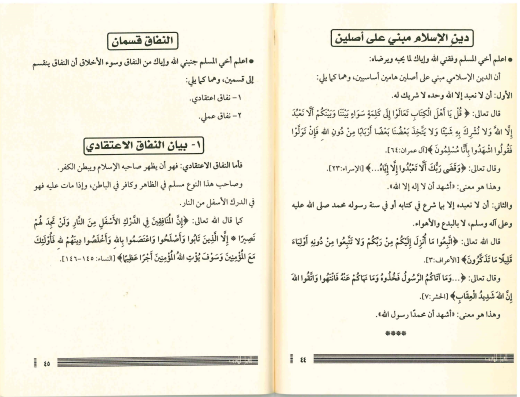 دين الإسلام مبني على أصلين
* اعلم أخي المسلم وفقني الله وإياك لما يحبه ويرضاه:
أن الدين الإسلامي مبني على أصلين هامين أساسيين، وهما كما يلي:
الأول: أن لا نعبد إلا الله وحده لا شريك له.
قال تعالى: ﴿قُلْ يَا أَهْلَ الْكِتَابِ تَعَالَوْا إِلَى كَلِمَةٍ سَوَاءٍ بَيْنَنَا وَبَيْنَكُمْ أَلَّا نَعْبُدَ
إِلَّا اللَّهَ وَلَا نُشْرِكَ بِهِ شَيْئًا وَلَا يَتَّخِذَ بَعْضُنَا بَعْضًا أَرْبَابًا مِنْ دُونِ اللَّهِ فَإِنْ تَوَلَّوْا
فَقُولُوا اشْهَدُوا بِأَنَّا مُسْلِمُونَ﴾ [آل عمران: ٦٤].
وقال تعالى: ﴿وَقَضَى رَبُّكَ أَلَّا تَعْبُدُوا إِلَّا إِيَّاهُ...﴾ [الإسراء: ٢٣].
وهذا هو معنى: «أشهد أن لا إله إلا الله».
والثاني: أن لا نعبده إلا بما شرع في كتابه أو في سنة رسوله محمد صلى الله عليه
وعلى آله وسلم، لا بالبدع والأهواء.
قال الله تعالى: ﴿اتَّبِعُوا مَا أُنْزِلَ إِلَيْكُمْ مِنْ رَبِّكُمْ وَلَا تَتَّبِعُوا مِنْ دُونِهِ أَوْلِيَاءَ
قَلِيلًا مَا تَذَكَّرُونَ﴾ [الأعراف: ٣].
وقال تعالى: ﴿...وَمَا آتَاكُمُ الرَّسُولُ فَخُذُوهُ وَمَا نَهَاكُمْ عَنْهُ فَانْتَهُوا وَاتَّقُوا اللَّهَ
إِنَّ اللَّهَ شَدِيدُ الْعِقَابِ﴾ [الحشر: ٧].
وهذا هو معنى: «أشهد أن محمدًا رسول الله».
****
٤٤
النفاق قسمان
* اعلم أخي المسلم جنبني الله وإياك من النفاق وسوء الأخلاق أن النفاق ينقسم
إلى قسمين، وهما كما يلي:
١- نفاق اعتقادي.
٢- نفاق عملي.
١- بيان النفاق الاعتقادي
فأما النفاق الاعتقادي: فهو أن يظهر صاحبه الإسلام ويبطن الكفر.
وصاحب هذا النوع مسلم في الظاهر وكافر في الباطن، وإذا مات عليه فهو
في الدرك الأسفل من النار.
كما قال الله تعالى: ﴿إِنَّ الْمُنَافِقِينَ فِي الدَّرْكِ الْأَسْفَلِ مِنَ النَّارِ وَلَنْ تَجِدَ لَهُمْ
نَصِيرًا * إِلَّا الَّذِينَ تَابُوا وَأَصْلَحُوا وَاعْتَصَمُوا بِاللَّهِ وَأَخْلَصُوا دِينَهُمْ لِلَّهِ فَأُولَئِكَ
مَعَ الْمُؤْمِنِينَ وَسَوْفَ يُؤْتِ اللَّهُ الْمُؤْمِنِينَ أَجْرًا عَظِيمًا﴾ [النساء: ١٤٥-١٤٦].
٤٥